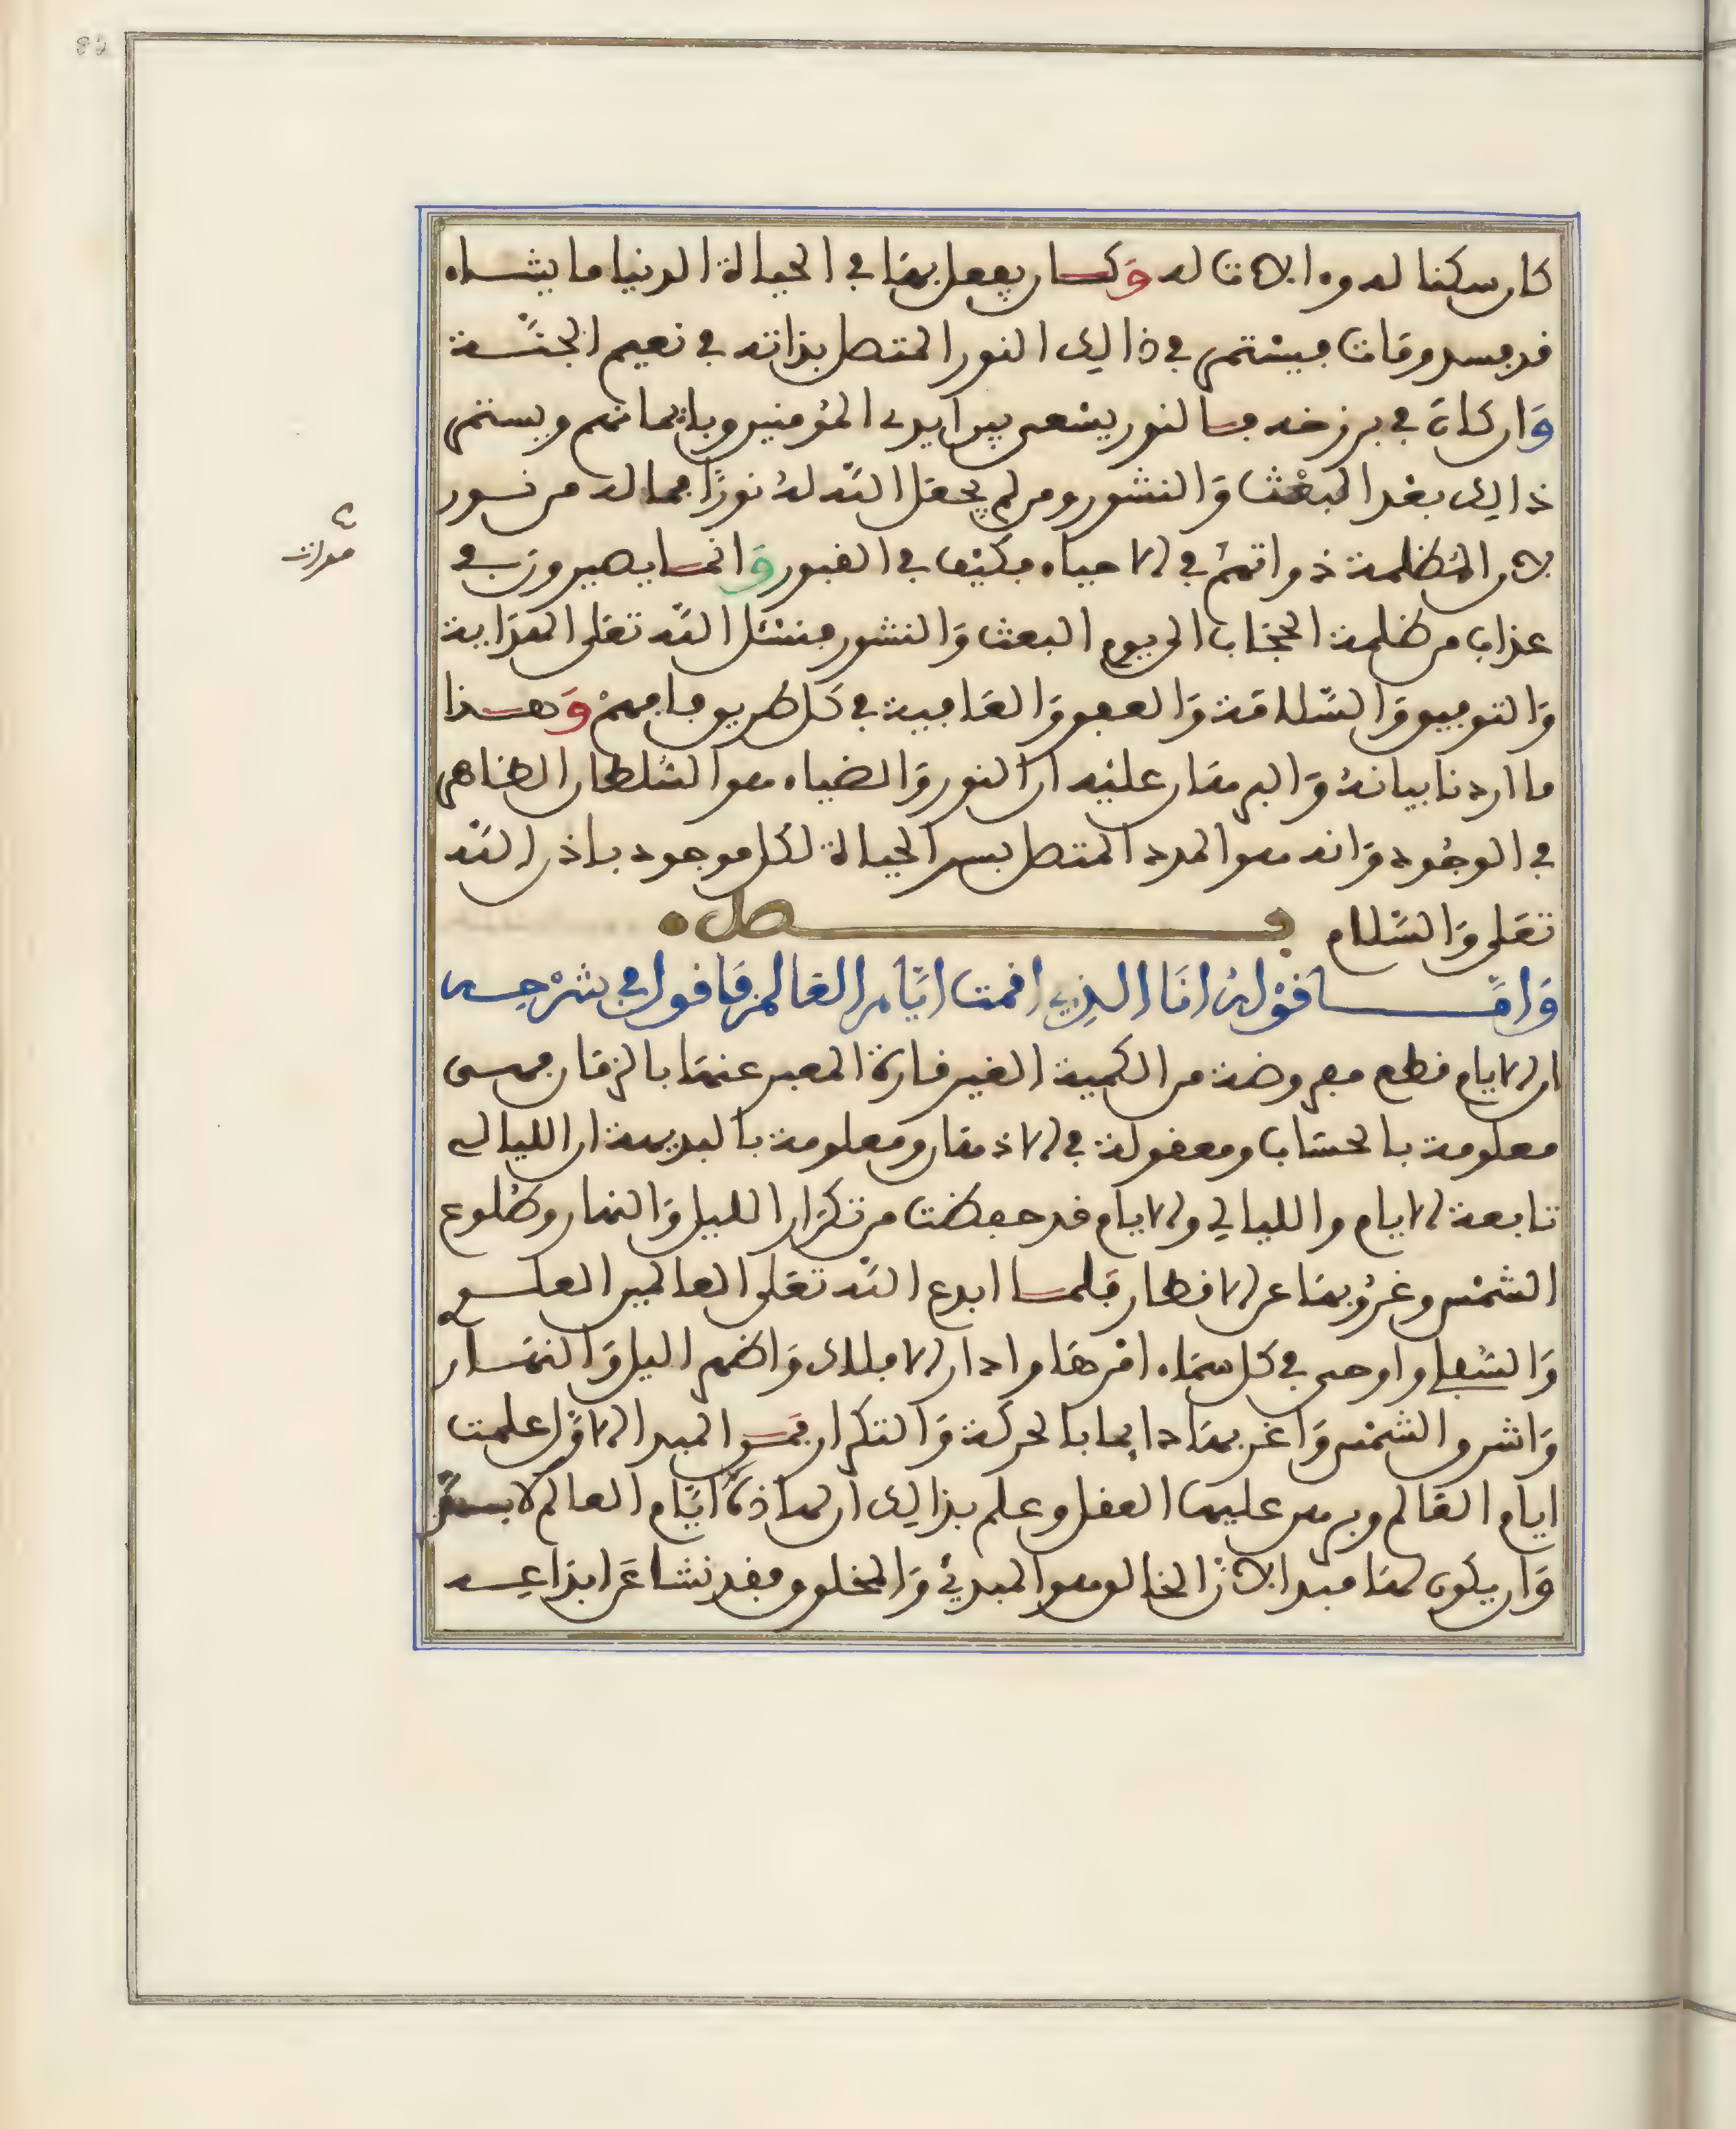 كان سكنا له وه الاقاله وكان يفعل بها في الحياة الدنيا ما يشاء
قد فسد ومات فيستمر في ذالك النور المتصل بذاته في نعيم الجنة
وان كان في برزخه فالنور يسعى بين ايدي المؤمنين وبايمانهم ويستمر
ذالك بعد البعث والنشور ومن لم يجعل الله له نورا فما له من نور
لان المظلمة ذواتهم في الاحياء فكيف في القبور وانما يصيرون في
عذاب من ظلمة الحجاب الى يوم البعث والنشور فنسئل الله تعلى الهداية
والتوفيق والسلامة والعفو والعافية في كل طريق فافهم وهذا
ما اردنا بيانه والبرهان عليه ان النور والضياء هو السلطان الظاهر
في الوجود وانه هو المدد المتصل بسر الحياة لكل موجود باذن الله
تعلى والسلام فصل
واما قوله انا الذي اقمت ايام العالم فاقول في شرحه
ان الايام قطع مفروضة من الكمية الغير قارة المعبر عنها بالزمان فهي
معلومة بالحساب ومعقولة في الاذهان ومعلومة بالبديهة ان الليالي
تابعة الايام والليالي والايام قد حفظت من تكرار الليل والنهار وطلوع
الشمس وغروبها عن الاقطار فلما ابدع الله تعلى العالمين العلو
والسفلى واوحى في كل سماء امرها وادار الافلاك واظهر اليل والنهار
واشرق الشمس واغربها دايما بالحركة والتكرار فمن المبدا الاول علمت
ايام العالم وبرهن عليها العقل وعلم بذالك ان لهاذه ايام العالم لا بد
وان يكون لها مبدا لان الخالق هو المبدئ والمخلوق فقد نشا عن ابداعه
هو ان